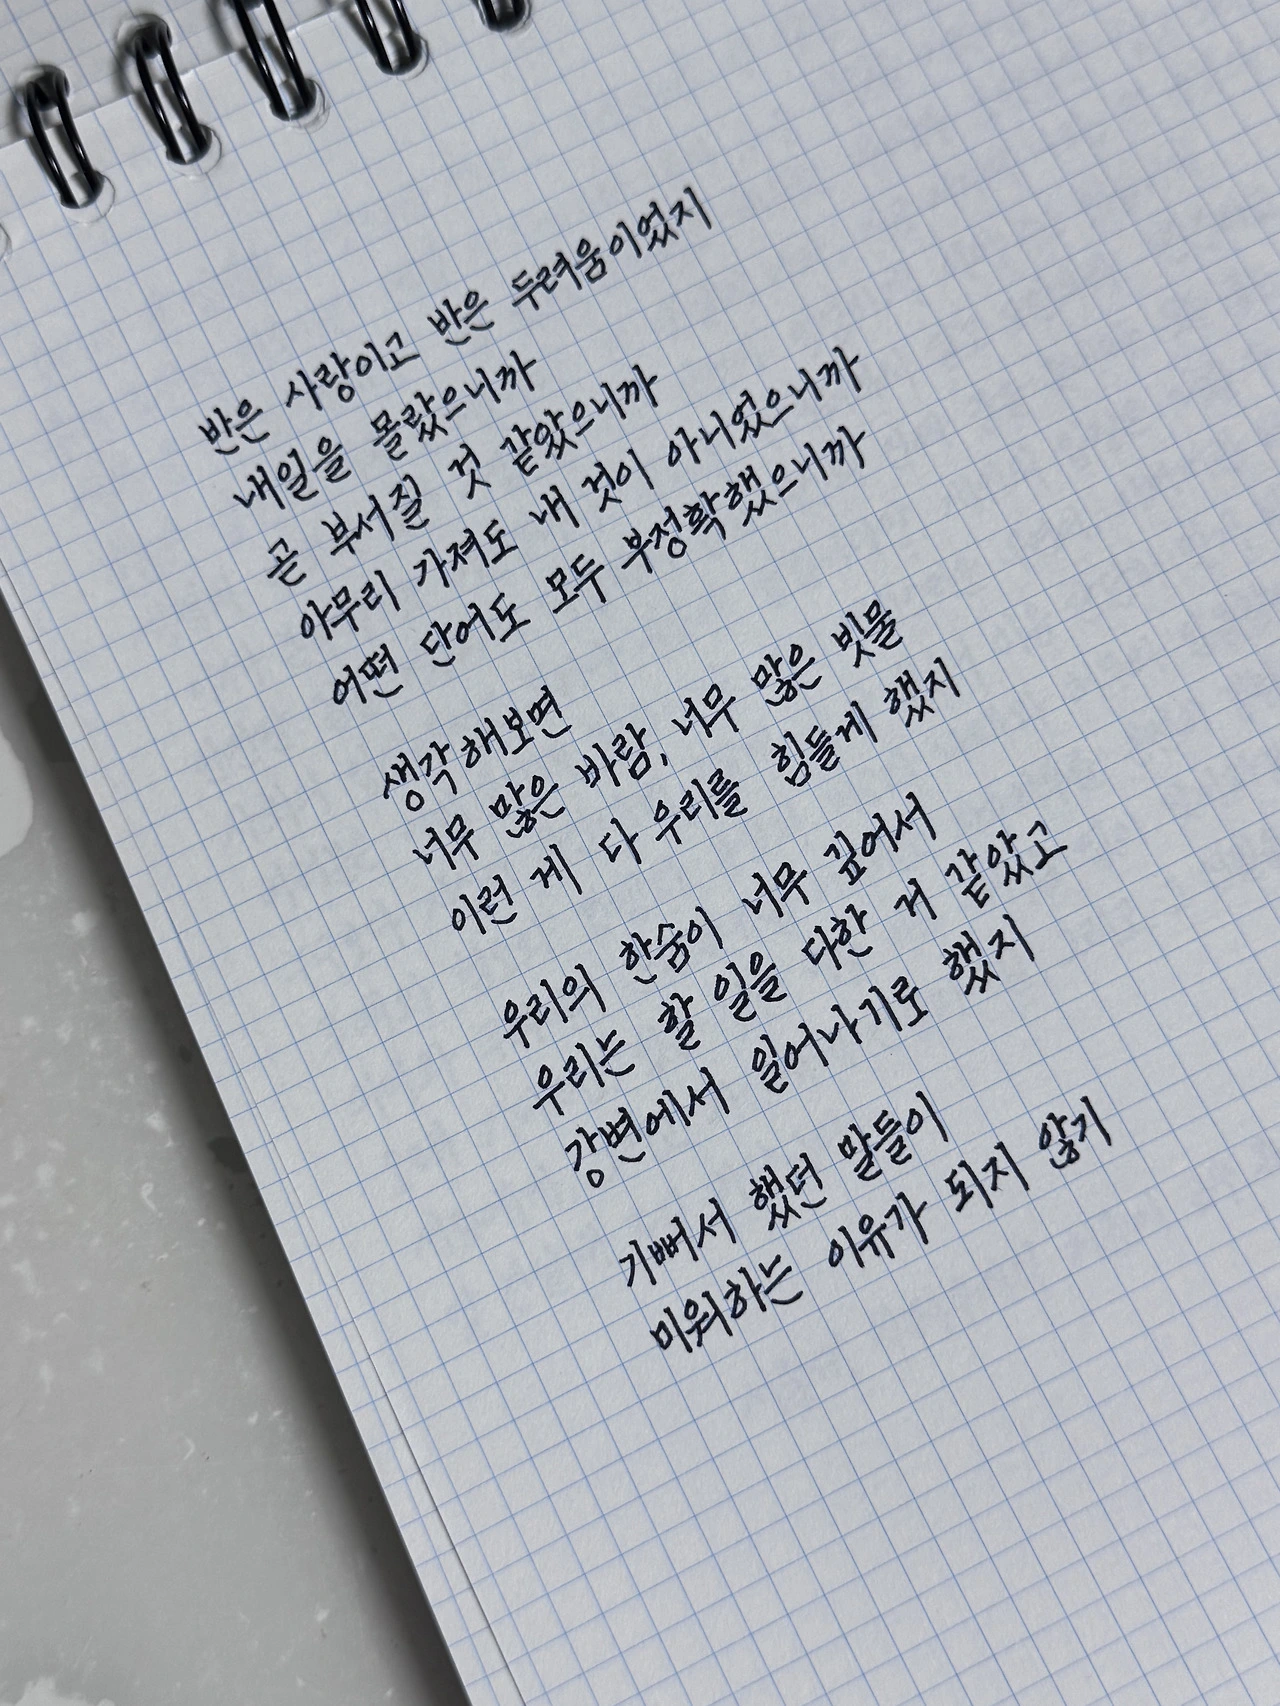 반은 사랑이고 반은 두려움이었지
내일을 몰랐으니까
곧 부서질 것 같았으니까
아무리 가져도 내 것이 아니었으니까
어떤 단어도 모두 부정확했으니까
생각해보면
너무 많은 바람, 너무 많은 빗물
이런 게 다 우리를 힘들게 했지
우리의 한숨이 너무 깊어서
우리는 할 일을 다한 거 같았고
강변에서 일어나기로 했지
기뻐서 했던 말들이
미워하는 이유가 되지 않기